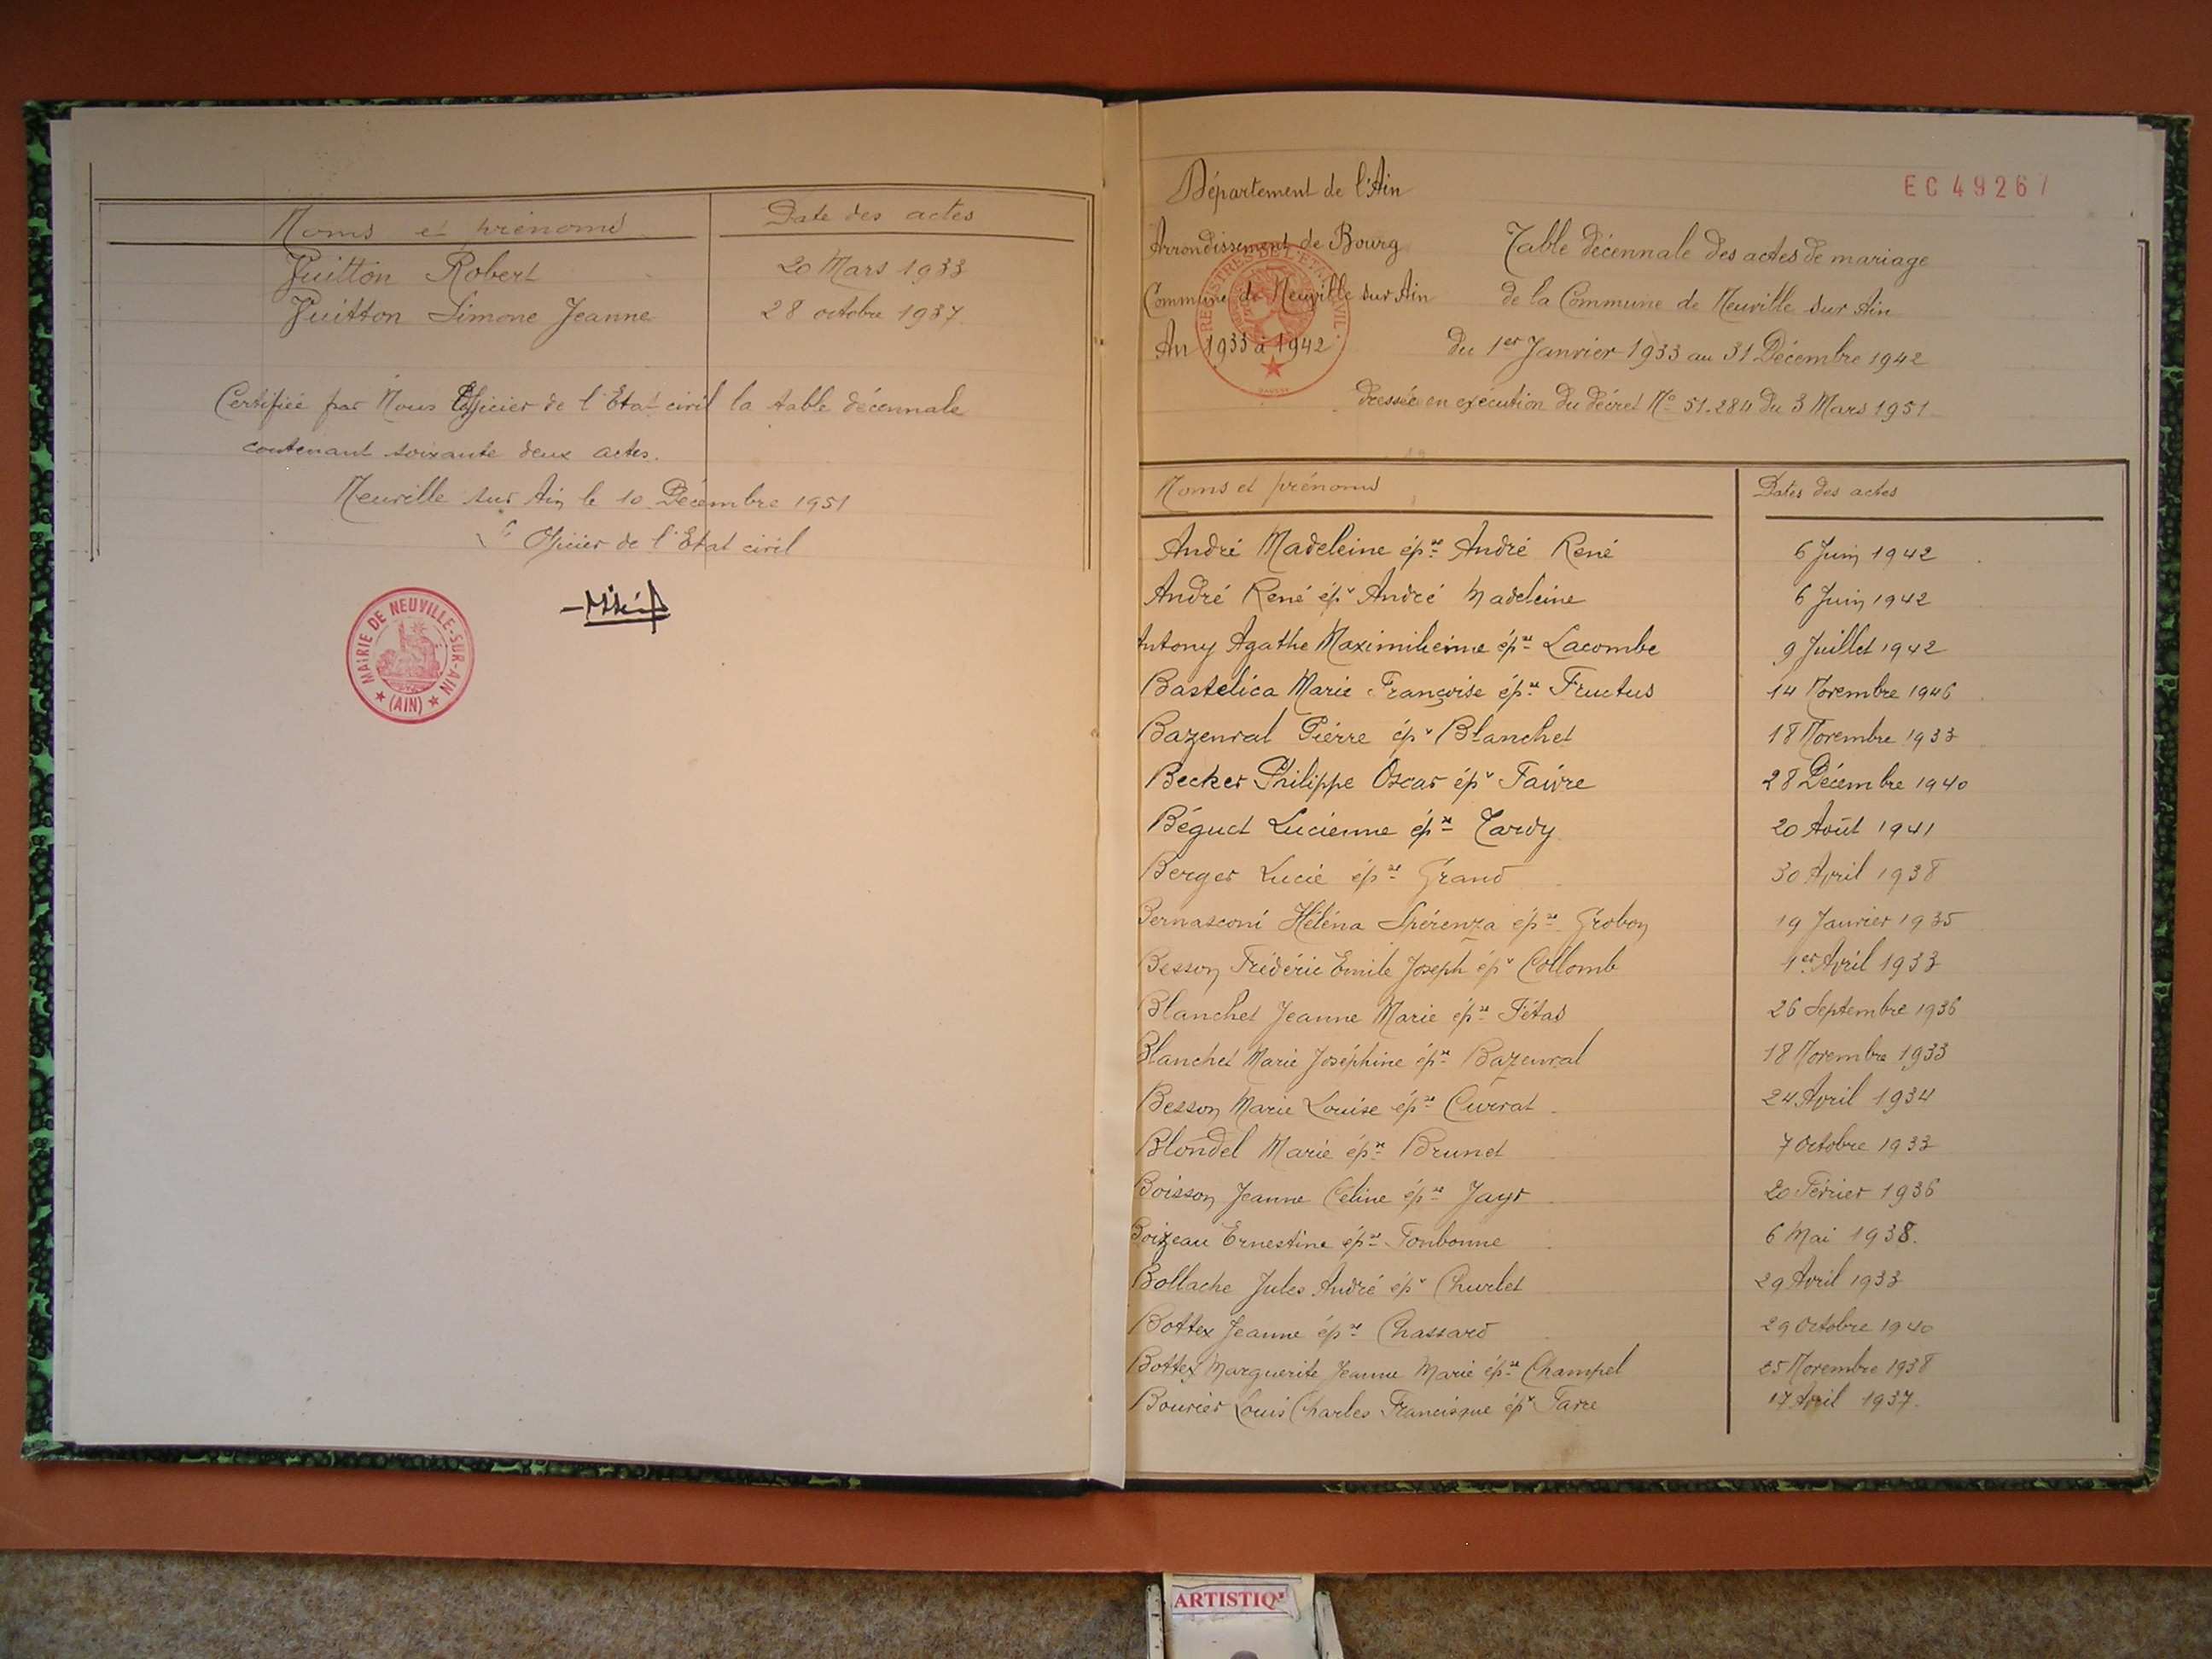 Noms et prénoms
Date des actes
Vuitton Robert
20 Mars 1933
Vuitton Simone Jeanne
28 octobre 1937
Certifiée par Nous Officier de l'Etat civil la table décennale
contenant soixante deux actes.
Neuville sur Ain le 10 Décembre 1951
L' Officier de l'Etat civil
MAIRIE DE NEUVILLE-SUR-AIN
(AIN)
Département de l'Ain
EC 49267
Arrondissement de Bourg
Commune de Neuville sur Ain
An 1933 à 1942
Table décennale des actes de mariage
de la Commune de Neuville sur Ain
du 1er Janvier 1933 au 31 Décembre 1942
dressée en exécution du décret No 51.284 du 3 Mars 1951
Noms et prénoms
Dates des actes
André Madeleine épse André René 6 Juin 1942
André René épx André Madeleine 6 Juin 1942
Antony Agathe Maximilienne épse Lacombe 9 Juillet 1942
Bastelica Marie Françoise épse Fructus 14 Novembre 1946
Bazenval Pierre épx Blanchet 18 Novembre 1933
Becker Philippe Oscar épx Faivre 28 Décembre 1940
Béguet Lucienne épse Tardy 20 Août 1941
Berger Lucie épse Grand 30 Avril 1938
Bernasconi Héléna Spérenza épse Grobon 19 Janvier 1935
Besson Frédéric Emile Joseph épx Collomb 1er Avril 1933
Blanchet Jeanne Marie épse Fétas 26 Septembre 1936
Blanchet Marie Joséphine épse Bazenval 18 Novembre 1933
Besson Marie Louise épse Curvat 24 Avril 1934
Blondel Marie épse Brunet 7 Octobre 1933
Boisson Jeanne Céline épse Jayr 20 Février 1936
Boizeau Ernestine épse Fonbonne 6 Mai 1938.
Bollache Jules André épx Churlet 29 Avril 1933
Bottex Jeanne épse Chassard 29 Octobre 1940
Bottex Marguerite Jeanne Marie épse Champel 25 Novembre 1938
Bourier Louis Charles Francisque épx Farre 17 Avril 1937.
ARTISTIQ